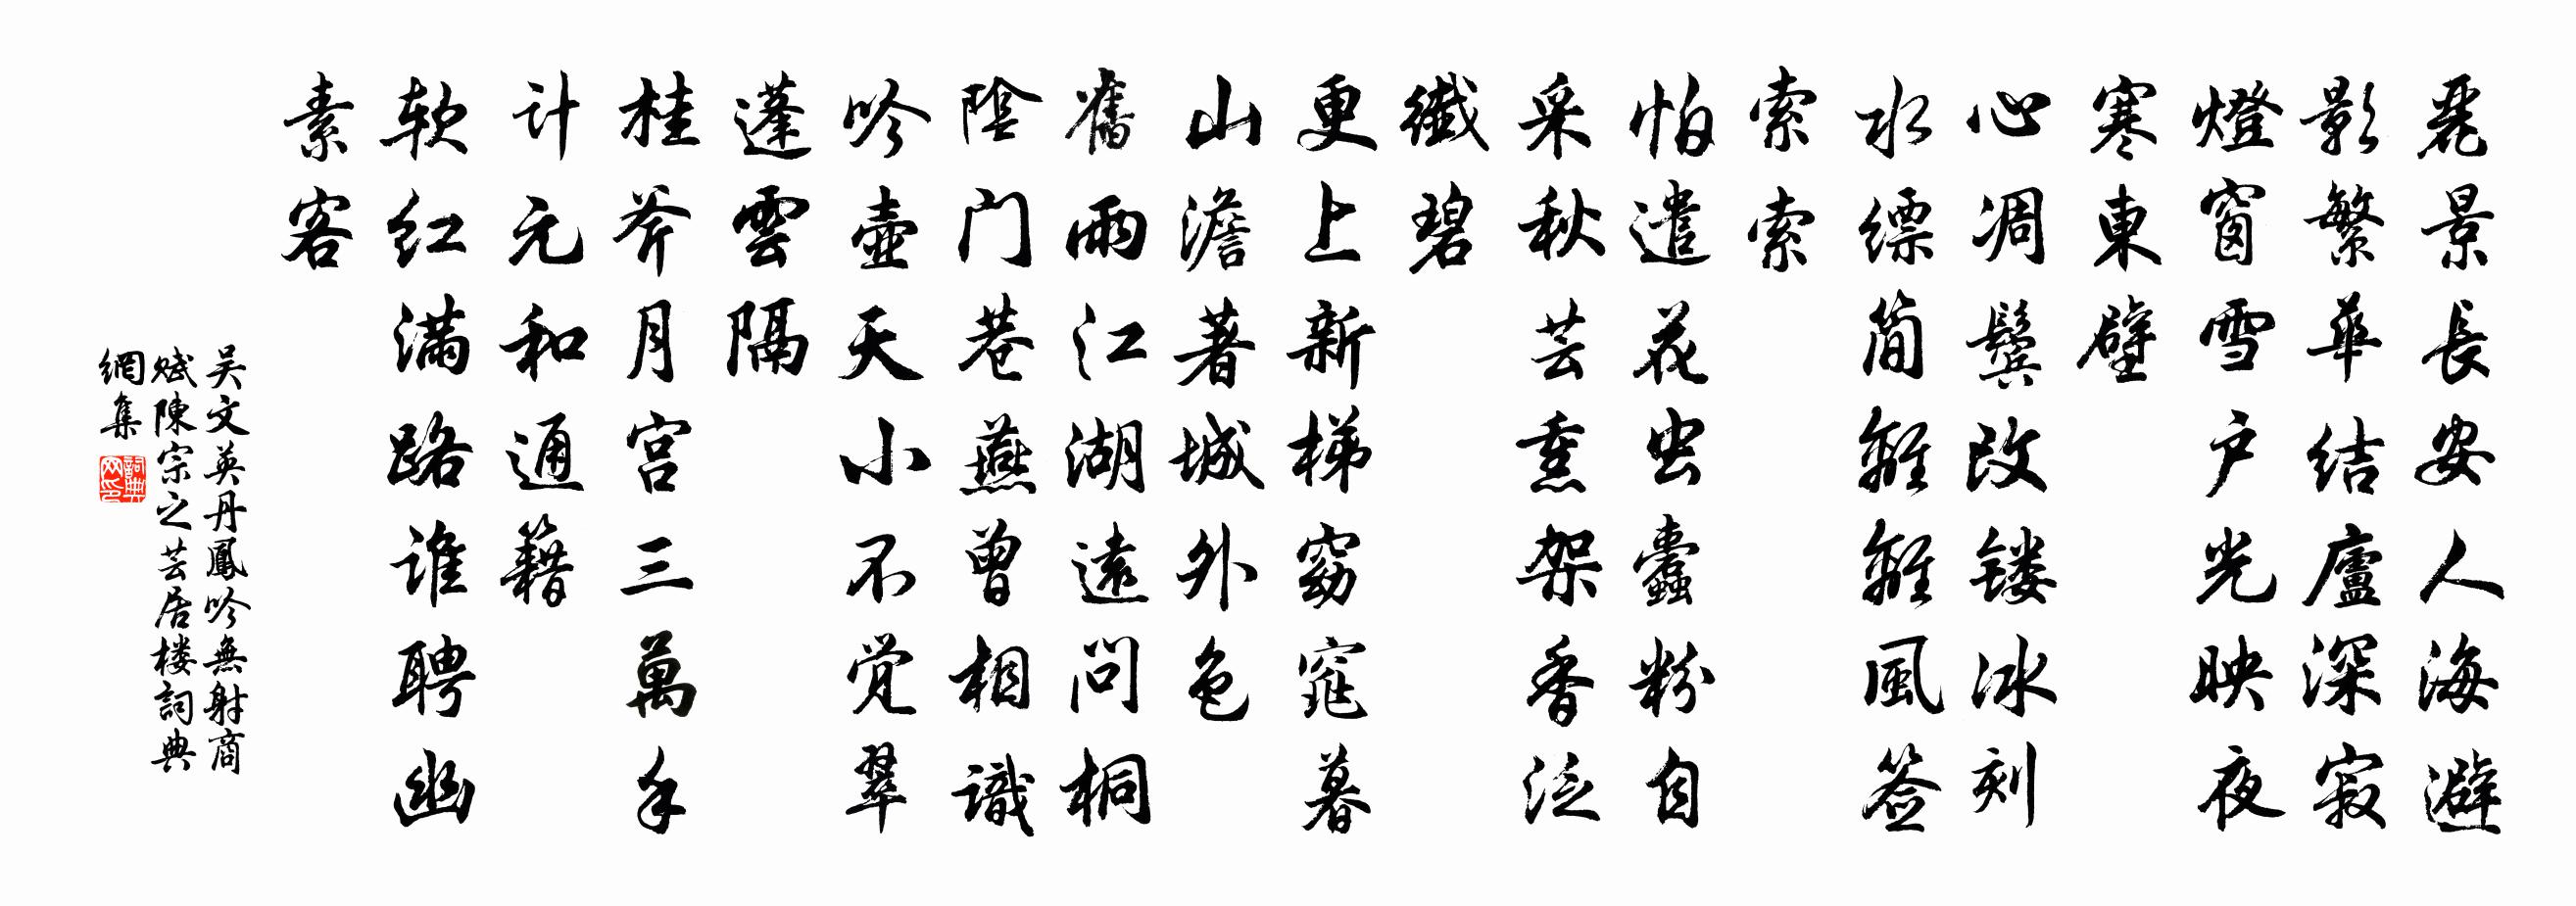 麗景長安人海避
影繁華結廬深寂
燈窗雪户光映夜
寒東壁
心凋鬓改镂冰刻
水缥简離離風签
索索
怕遣花虫蠹粉自
采秋芸熏架香泛
纖碧
更上新梯窈窕暮
山澹著城外色
舊雨江湖遠问桐
陰门巷燕曾相識
吟壺天小不觉翠
蓬雲隔
桂斧月宫三萬手
计元和通籍
软红满路谁聘幽
素客
吴文英丹鳳吟無射商
赋陳宗之芸居楼詞典
網集
詞典网印